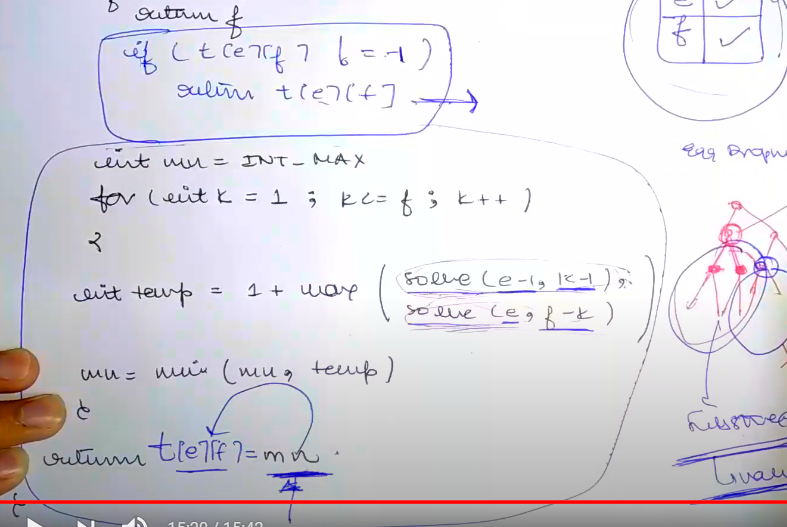 return f
if ( t[e][f] != -1 )
return t[e][f]
int mn = INT_MAX
for (int k = 1 ; k<= f ; k++ )
{
int temp = 1 + max ( solve (e-1, k-1),
solve (e, f-k) )
mn = min (mn, temp)
}
return t[e][f] = mn
}
e ✓
f ✓
Egg Drop
15:20 / 15:42